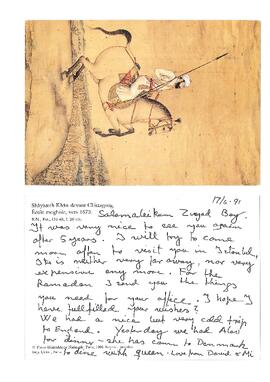 17/6-91
Shâyestêh Khân devant Chittagong
École moghole, vers 1673.
B.N., Paris,
Salamaleikum Zvyad Bey.
It was very nice to see you again
after 5 years. I will try to come
soon after to visit you in Istanbul,
It is neither very far away, nor very
expensive any more. For the
Ramadan I send you the things
you need for your office. I hope I
have fullfilled your wishes?
We had a nice but very cold trip
to England. Yesterday we had
for dinner - she has come to Denmark
to dine with queen. Love from David &